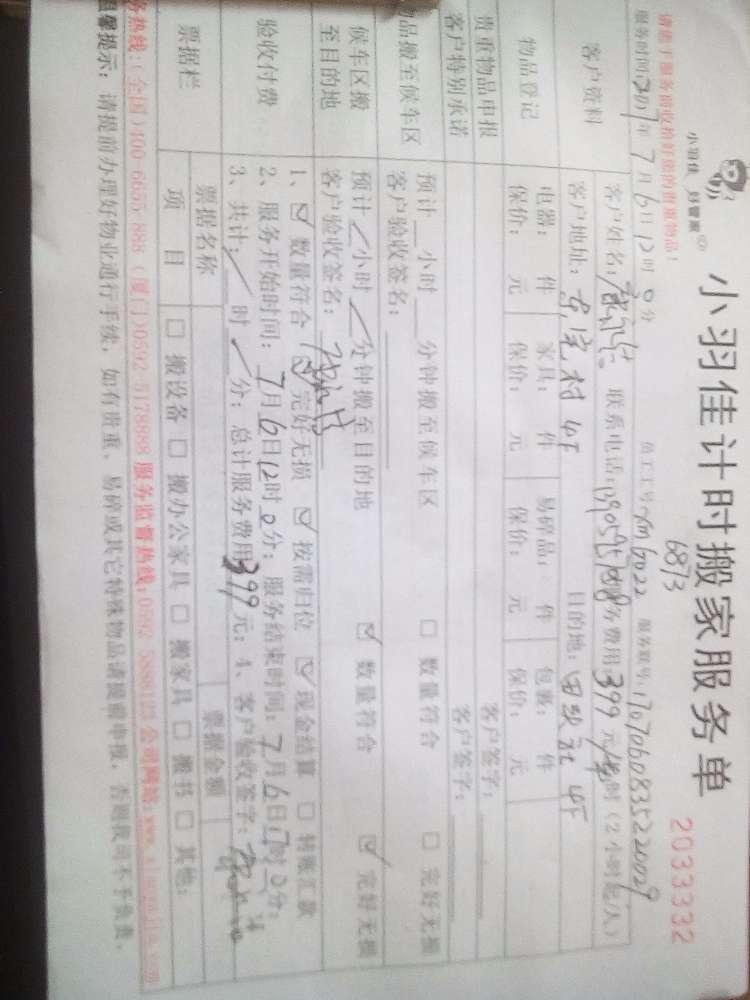 小羽佳 好管家
小羽佳计时搬家服务单
2033332
请留于服务前收拾好您的贵重物品!
6873
服务时间:2017年7月6日12时0分 员工工号: 6022 服务账号:170706083522029
客户资料
客户姓名: 联系电话: 服务费用:399元 时(2小时起/人)
客户地址: 村4F 目的地: 4F
物品登记
电器: 件 家具: 件 易碎品: 件 包裹: 件
保价: 元 保价: 元 保价: 元 保价: 元
贵重物品申报 客户签字:
客户特别承诺 客户签字:
物品搬至候车区
预计 小时 分钟搬至候车区 □ 数量符合 □ 完好无损
客户验收签名:
候车区搬至目的地
预计 小时 分钟搬至目的地 ☑ 数量符合 ☑ 完好无损
客户验收签名:
验收付费
1、☑ 数量符合 ☑ 完好无损 ☑ 按需归位 ☑ 现金结算 □ 转账汇款
2、服务开始时间:7月6日12时0分;服务结束时间:7月6日 时0分;
3、共计: 时 分;总计服务费用399元;4、客户验收签字:
票据栏
票据名称 票据金额
项目 □ 搬设备 □ 搬办公家具 □ 搬家具 □ 搬书 □ 其他:
务热线:(全国)400 6655 888 (厦门)0592-5178888 服务监督热线:0592 5888123 公司网站:www.xiaoyujia.com
温馨提示:请提前办理好物业通行手续,如有贵重、易碎或其它特殊物品请提前申报,否则我司不予负责。